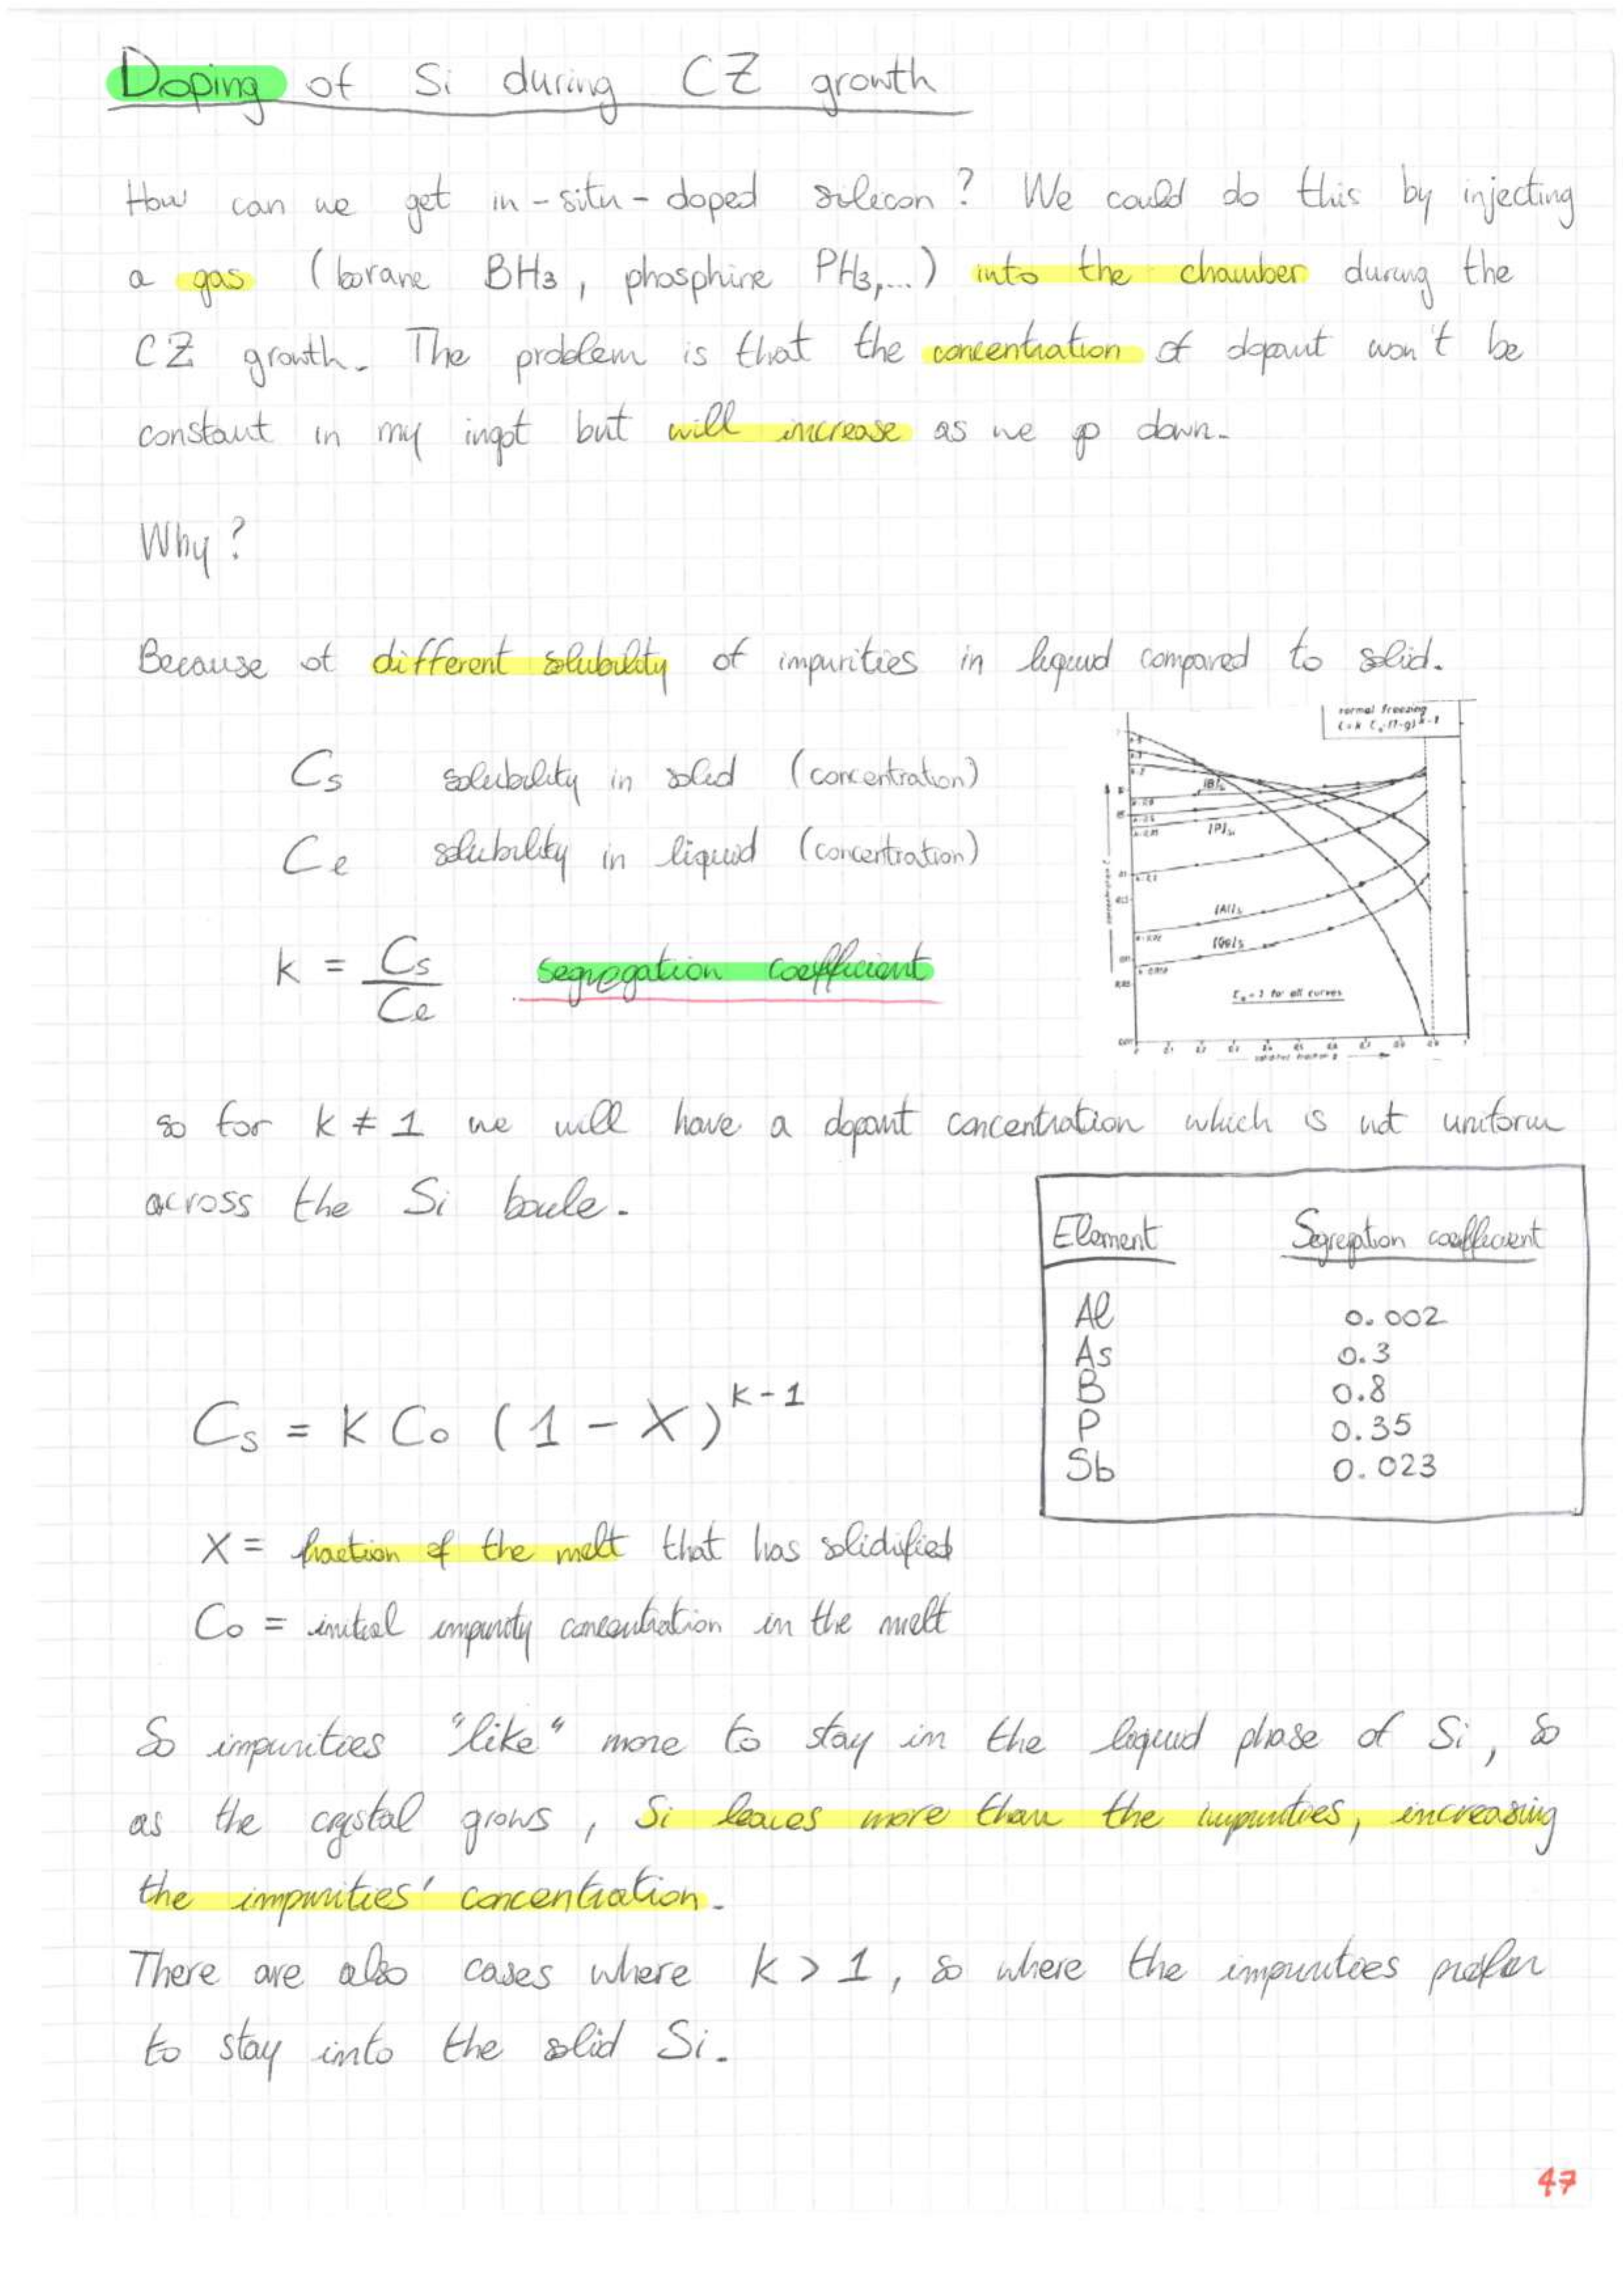 Doping of Si during CZ growth
How can we get in-situ-doped silicon? We could do this by injecting
a gas (borane BH3, phosphine PH3,...) into the chamber during the
CZ growth. The problem is that the concentration of dopant won't be
constant in my ingot but will increase as we go down.
Why?
Because of different solubility of impurities in liquid compared to solid.
Cs solubility in solid (concentration)
Ce solubility in liquid (concentration)
k = Cs/Ce segregation coefficient
normal freezing
[B]Si
[P]Si
C₀ = 1 for all curves
so for k ≠ 1 we will have a dopant concentration which is not uniform
across the Si boule.
Element Segregation coefficient
Al 0.002
As 0.3
B 0.8
P 0.35
Sb 0.023
Cs = K Co (1 - X)^(K-1)
X = fraction of the melt that has solidified
Co = initial impurity concentration in the melt
So impurities "like" more to stay in the liquid phase of Si, so
as the crystal grows, Si leaves more than the impurities, increasing
the impurities' concentration.
There are also cases where k > 1, so where the impurities prefer
to stay into the solid Si.
47